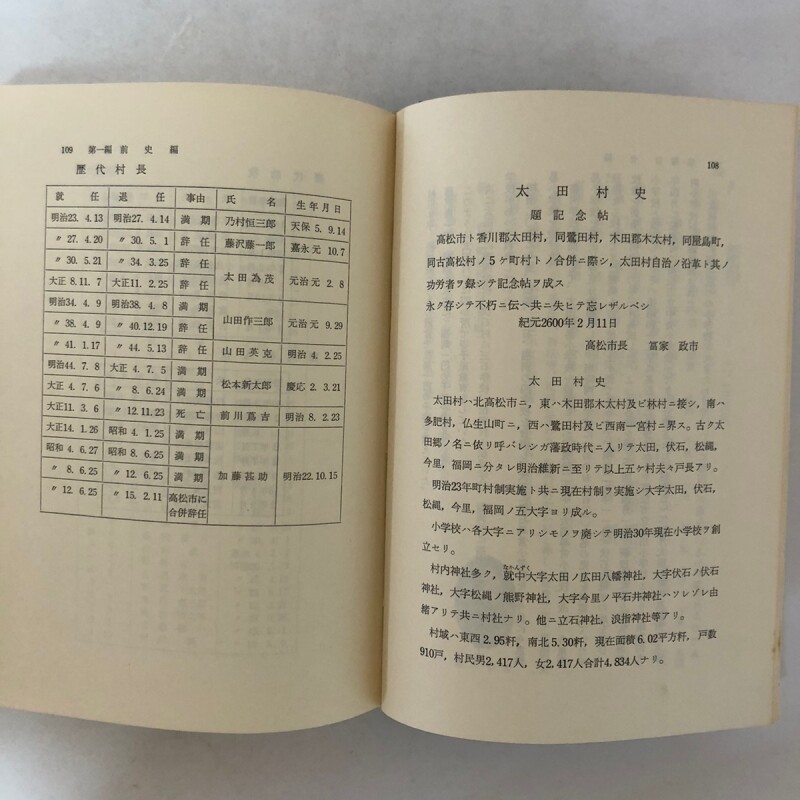 108
太田村史
題記念帖
高松市ト香川郡太田村，同鷺田村，木田郡木太村，同屋島町，
同古高松村ノ5ケ町村トノ合併ニ際シ，太田村自治ノ沿革ト其ノ
功労者ヲ録シテ記念帖ヲ成ス
永ク存シテ不朽ニ伝ヘ共ニ失ヒテ忘レザルベシ
紀元2600年2月11日
高松市長　冨家　政市
太田村史
太田村ハ北高松市ニ，東ハ木田郡木太村及ビ林村ニ接シ，南ハ
多肥村，仏生山町ニ，西ハ鷺田村及ビ西南一宮村ニ界ス。古ク太
田郷ノ名ニ依リ呼バレシガ藩政時代ニ入リテ太田，伏石，松縄，
今里，福岡ニ分タレ明治維新ニ至リテ以上五ケ村夫々戸長アリ。
明治23年町村制実施ト共ニ現在村制ヲ実施シ大字太田，伏石，
松縄，今里，福岡ノ五大字ヨリ成ル。
小学校ハ各大字ニアリシモノヲ廃シテ明治30年現在小学校ヲ創
立セリ。
村内神社多ク，就中大字太田ノ広田八幡神社，大字伏石ノ伏石
なかんずく
神社，大字松縄ノ熊野神社，大字今里ノ平石井神社ハソレゾレ由
緒アリテ共ニ村社ナリ。他ニ立石神社，浪指神社等アリ。
村城ハ東西2.95粁，南北5.30粁，現在面積6.02平方粁，戸数
910戸，村民男2,417人，女2,417人合計4,834人ナリ。
109　第一編　前　史　編
歴代村長
就任　退任　事由　氏名　生年月日
明治23.4.13　明治27.4.14　満期　乃村恒三郎　天保5.9.14
〃27.4.20　〃30.5.1　辞任　藤沢藤一郎　嘉永元10.7
〃30.5.21　〃34.3.25　辞任　太田為茂　元治元2.8
大正8.11.7　大正11.2.25　満期
明治34.4.9　明治38.4.8　満期　山田作三郎　元治元9.29
〃38.4.9　〃40.12.19　辞任
〃41.1.17　〃44.5.13　辞任　山田英克　明治4.2.25
明治44.7.8　大正4.7.5　満期　松本新太郎　慶応2.3.21
大正4.7.6　〃8.6.24　満期
大正11.3.6　〃12.11.23　死亡　前川蔦吉　明治8.2.23
大正14.1.26　昭和4.1.25　満期　加藤甚助　明治22.10.15
昭和4.6.27　昭和8.6.25　満期
〃8.6.25　〃12.6.25　満期
〃12.6.25　〃15.2.11　高松市に合併辞任